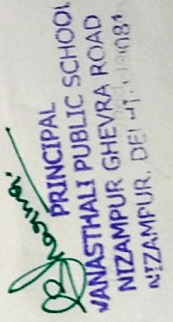 PRINCIPAL
VANASTHALI PUBLIC SCHOOL
NIZAMPUR GHEVRA ROAD
NIZAMPUR, DELHI